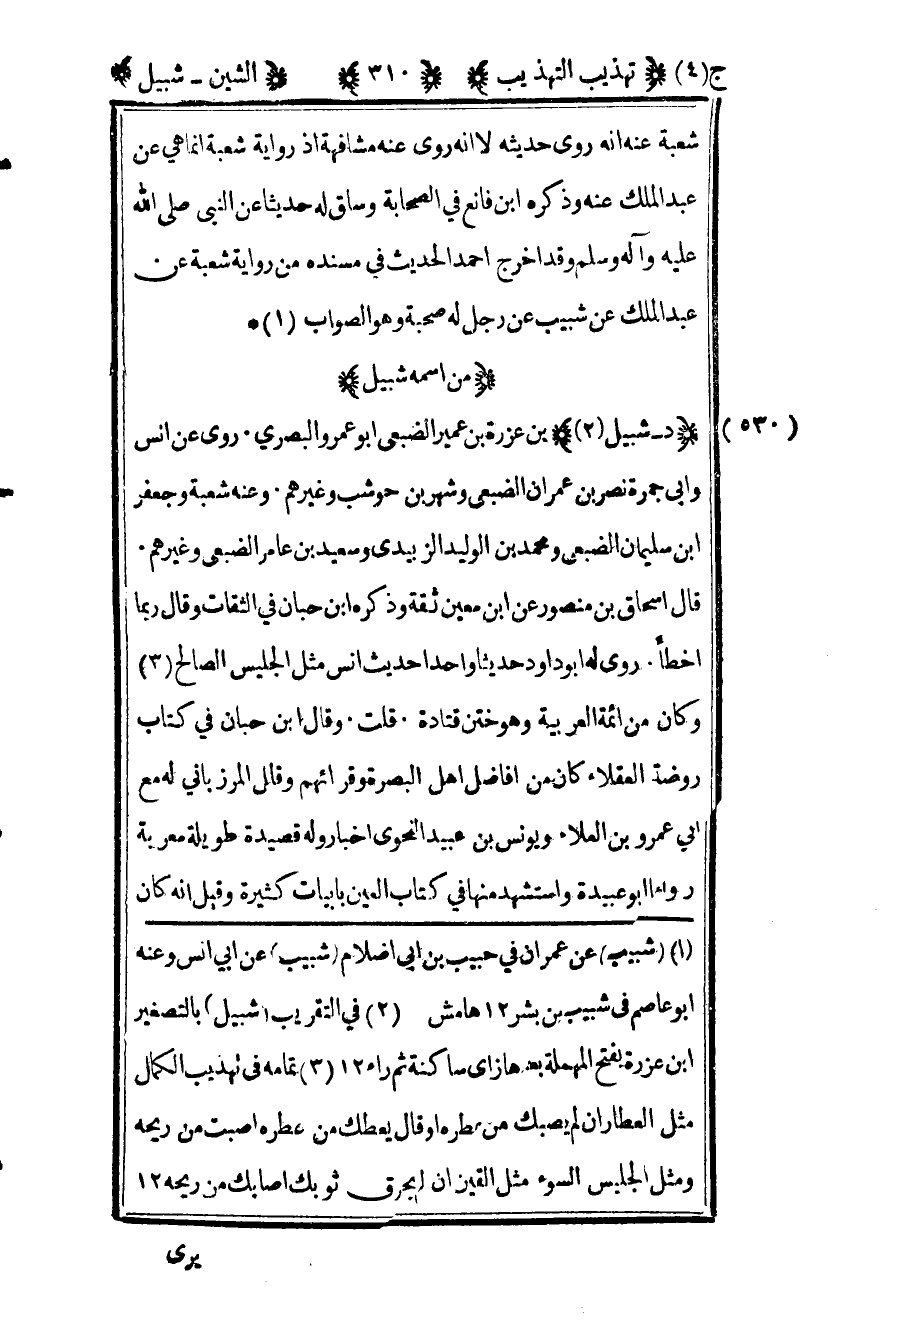 ج(٤) ﴿ تهذيب التهذيب ﴾ ﴿ ٣١٠ ﴾ ﴿ الشين ـ شبيل ﴾
شعبة عنه انه روى حديثه لا انه روى عنه مشافهة اذ رواية شعبة انماهي عن
عبدالملك عنه وذكره ابن قانع في الصحابة وساق له حديثا عن النبي صلى الله
عليه وآله وسلم وقد اخرج احمد الحديث في مسنده من رواية شعبة عن
عبدالملك عن شبيب عن رجل له صحبة وهو الصواب (١)*
﴿ من اسمه شبيل ﴾
(٥٣٠) ﴿ د ـ شبيل (٢) ﴾ بن عزرة بن عمير الضبعي ابو عمرو البصري ٠ روى عن انس
وابي جمرة نصر بن عمران الضبعي وشهر بن حوشب وغيرهم ٠ وعنه شعبة وجعفر
ابن سليمان الضبعي ومحمد بن الوليد الزبيدى وسعيد بن عامر الضبعي وغيرهم ٠
قال اسحاق بن منصور عن ابن معين ثقة وذكره ابن حبان في الثقات وقال ربما
اخطأ ٠ روى له ابوداود حديثا واحدا حديث انس مثل الجليس الصالح (٣)
وكان من ائمة العربية وهو ختن قتادة ٠ قلت ٠ وقال ابن حبان في كتاب
روضة العقلاء كان من افاضل اهل البصرة وقرائهم وقال المرزباني له مع
ابي عمرو بن العلاء ويونس بن عبيد النحوى اخبار وله قصيدة طويلة معربة
رواها ابوعبيدة واستشهد منها في كتاب العين بابيات كثيرة وقيل انه كان
(١) (شبيب) عن عمران في حبيب بن ابي اضلام (شبيب) عن ابي انس وعنه
ابو عاصم فى شبيب بن بشر ١٢ هامش (٢) في التقريب (شبيل) بالتصغير
ابن عزرة بفتح المهملة بعدها زاى ساكنة ثم راء ١٢ (٣) تمامه فى تهذيب الكمال
مثل العطار ان لم يصبك من عطره او قال يعطك من عطره اصبت من ريحه
ومثل الجليس السوء مثل القين ان لم يحرق ثوبك اصابك من ريحه ١٢
يرى